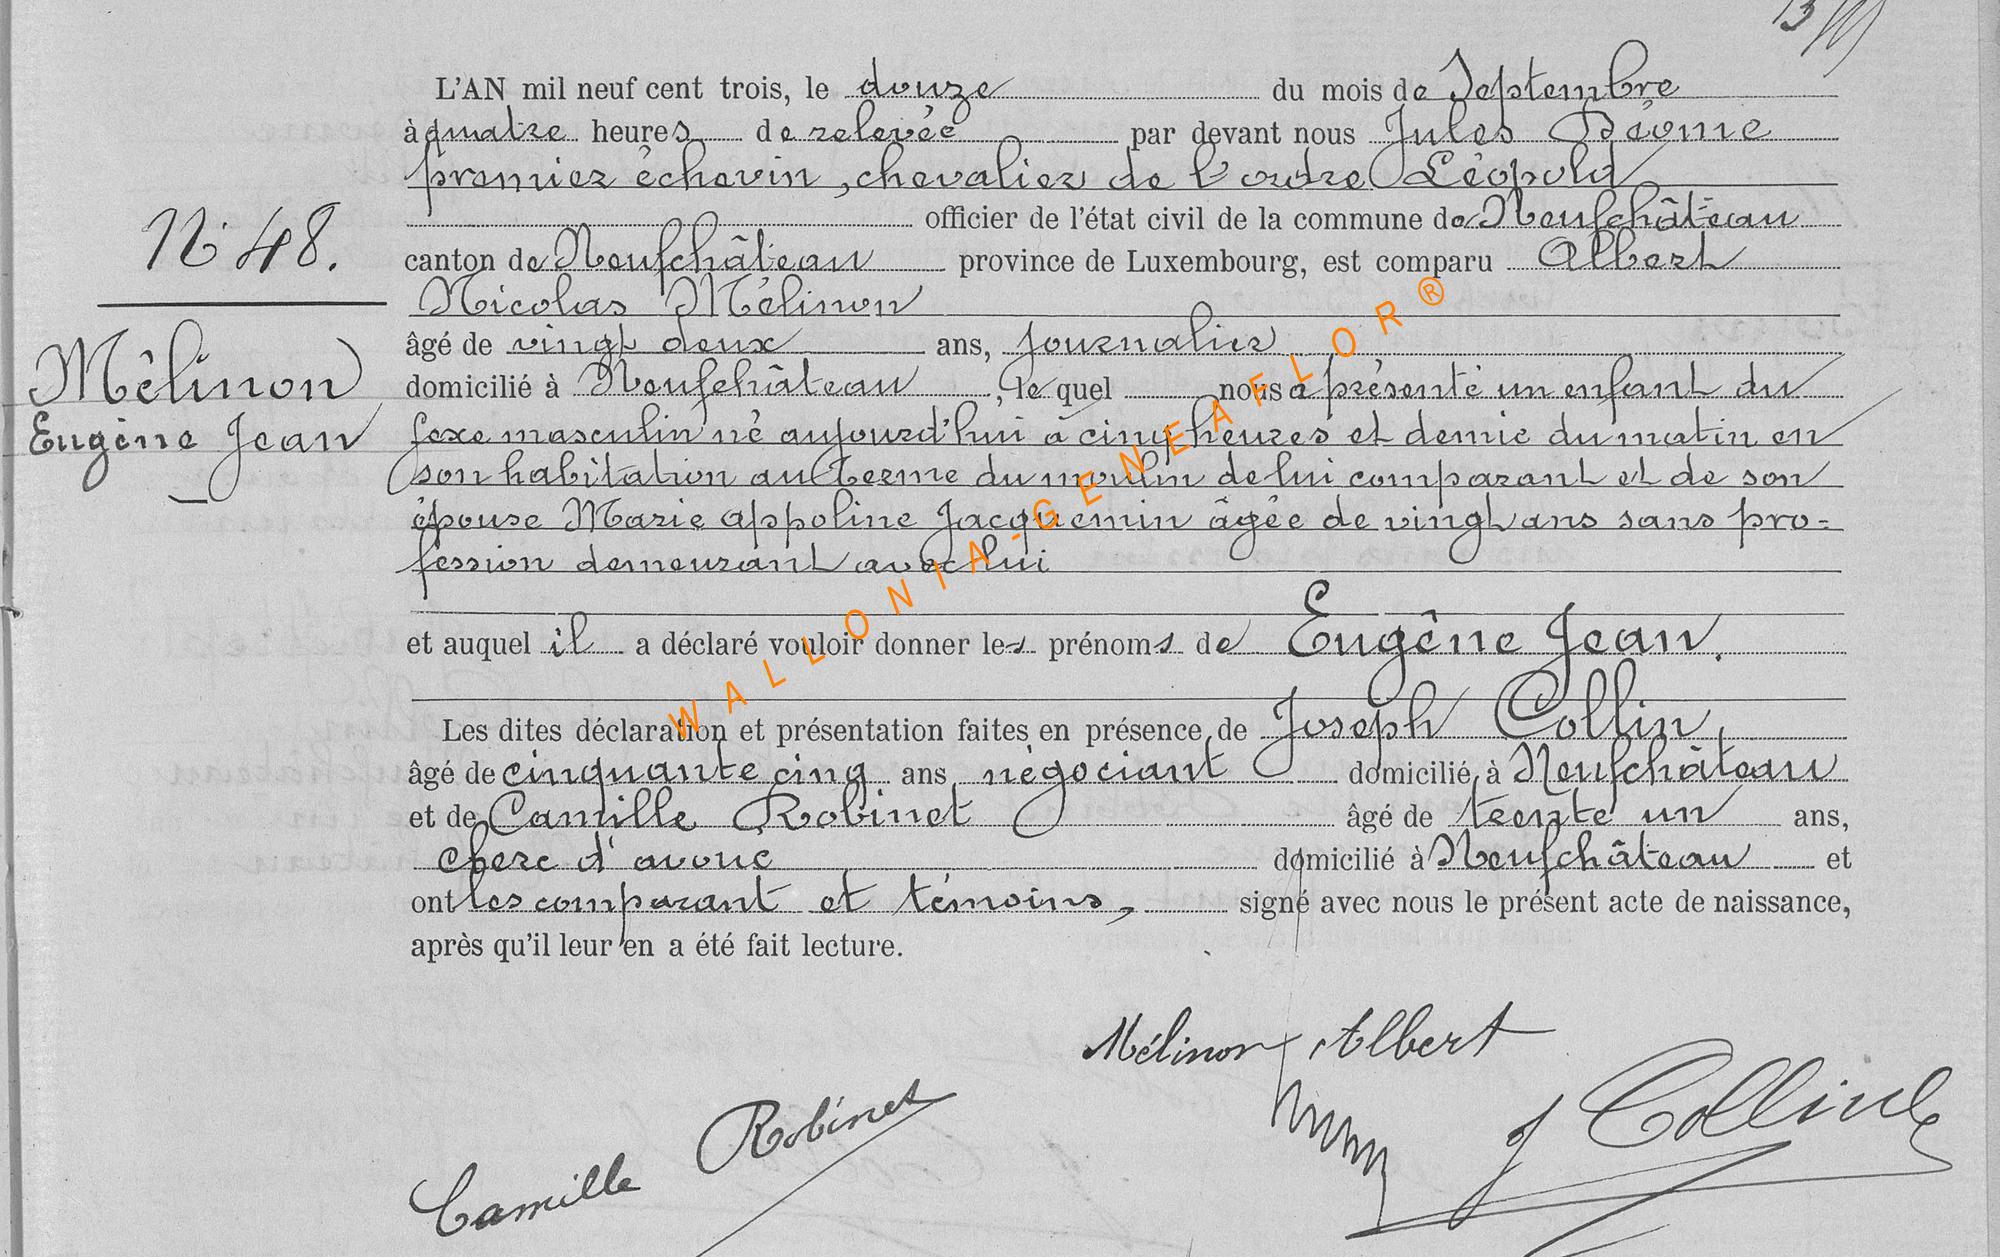 L'AN mil neuf cent trois, le douze du mois de Septembre
à quatre heures de relevée par devant nous Jules Déome
premier échevin, chevalier de l'ordre Léopold
officier de l'état civil de la commune de Neufchâteau
N° 48.
canton de Neufchâteau province de Luxembourg, est comparu Albert
Nicolas Mélinon
âgé de vingt deux ans, journalier
Mélinon
domicilié à Neufchâteau, le quel nous a présenté un enfant du
Eugène Jean
sexe masculin né aujourd'hui à cinq heures et demie du matin en
son habitation au terme du moulin de lui comparant et de son
épouse Marie appoline Jacquemin âgée de vingt ans sans pro=
fession demeurant avec lui
et auquel il a déclaré vouloir donner les prénoms de Eugène Jean.
Les dites déclaration et présentation faites en présence de Joseph Collin
âgé de cinquante cinq ans négociant domicilié à Neufchâteau
et de Camille Robinet âgé de trente un ans,
clerc d'avoué domicilié à Neufchâteau et
ont les comparant et témoins, signé avec nous le présent acte de naissance,
après qu'il leur en a été fait lecture.
Mélinon Albert
Camille Robinet
J Collin
WALLONIA-GENEAFLOR®